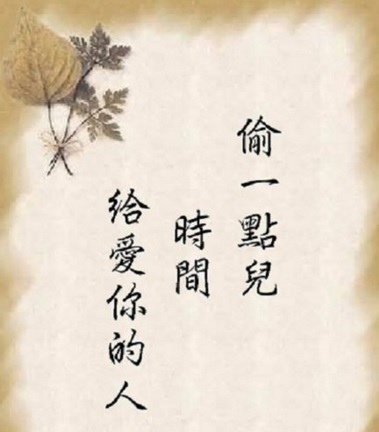 偷一點兒
時間
給愛你的人